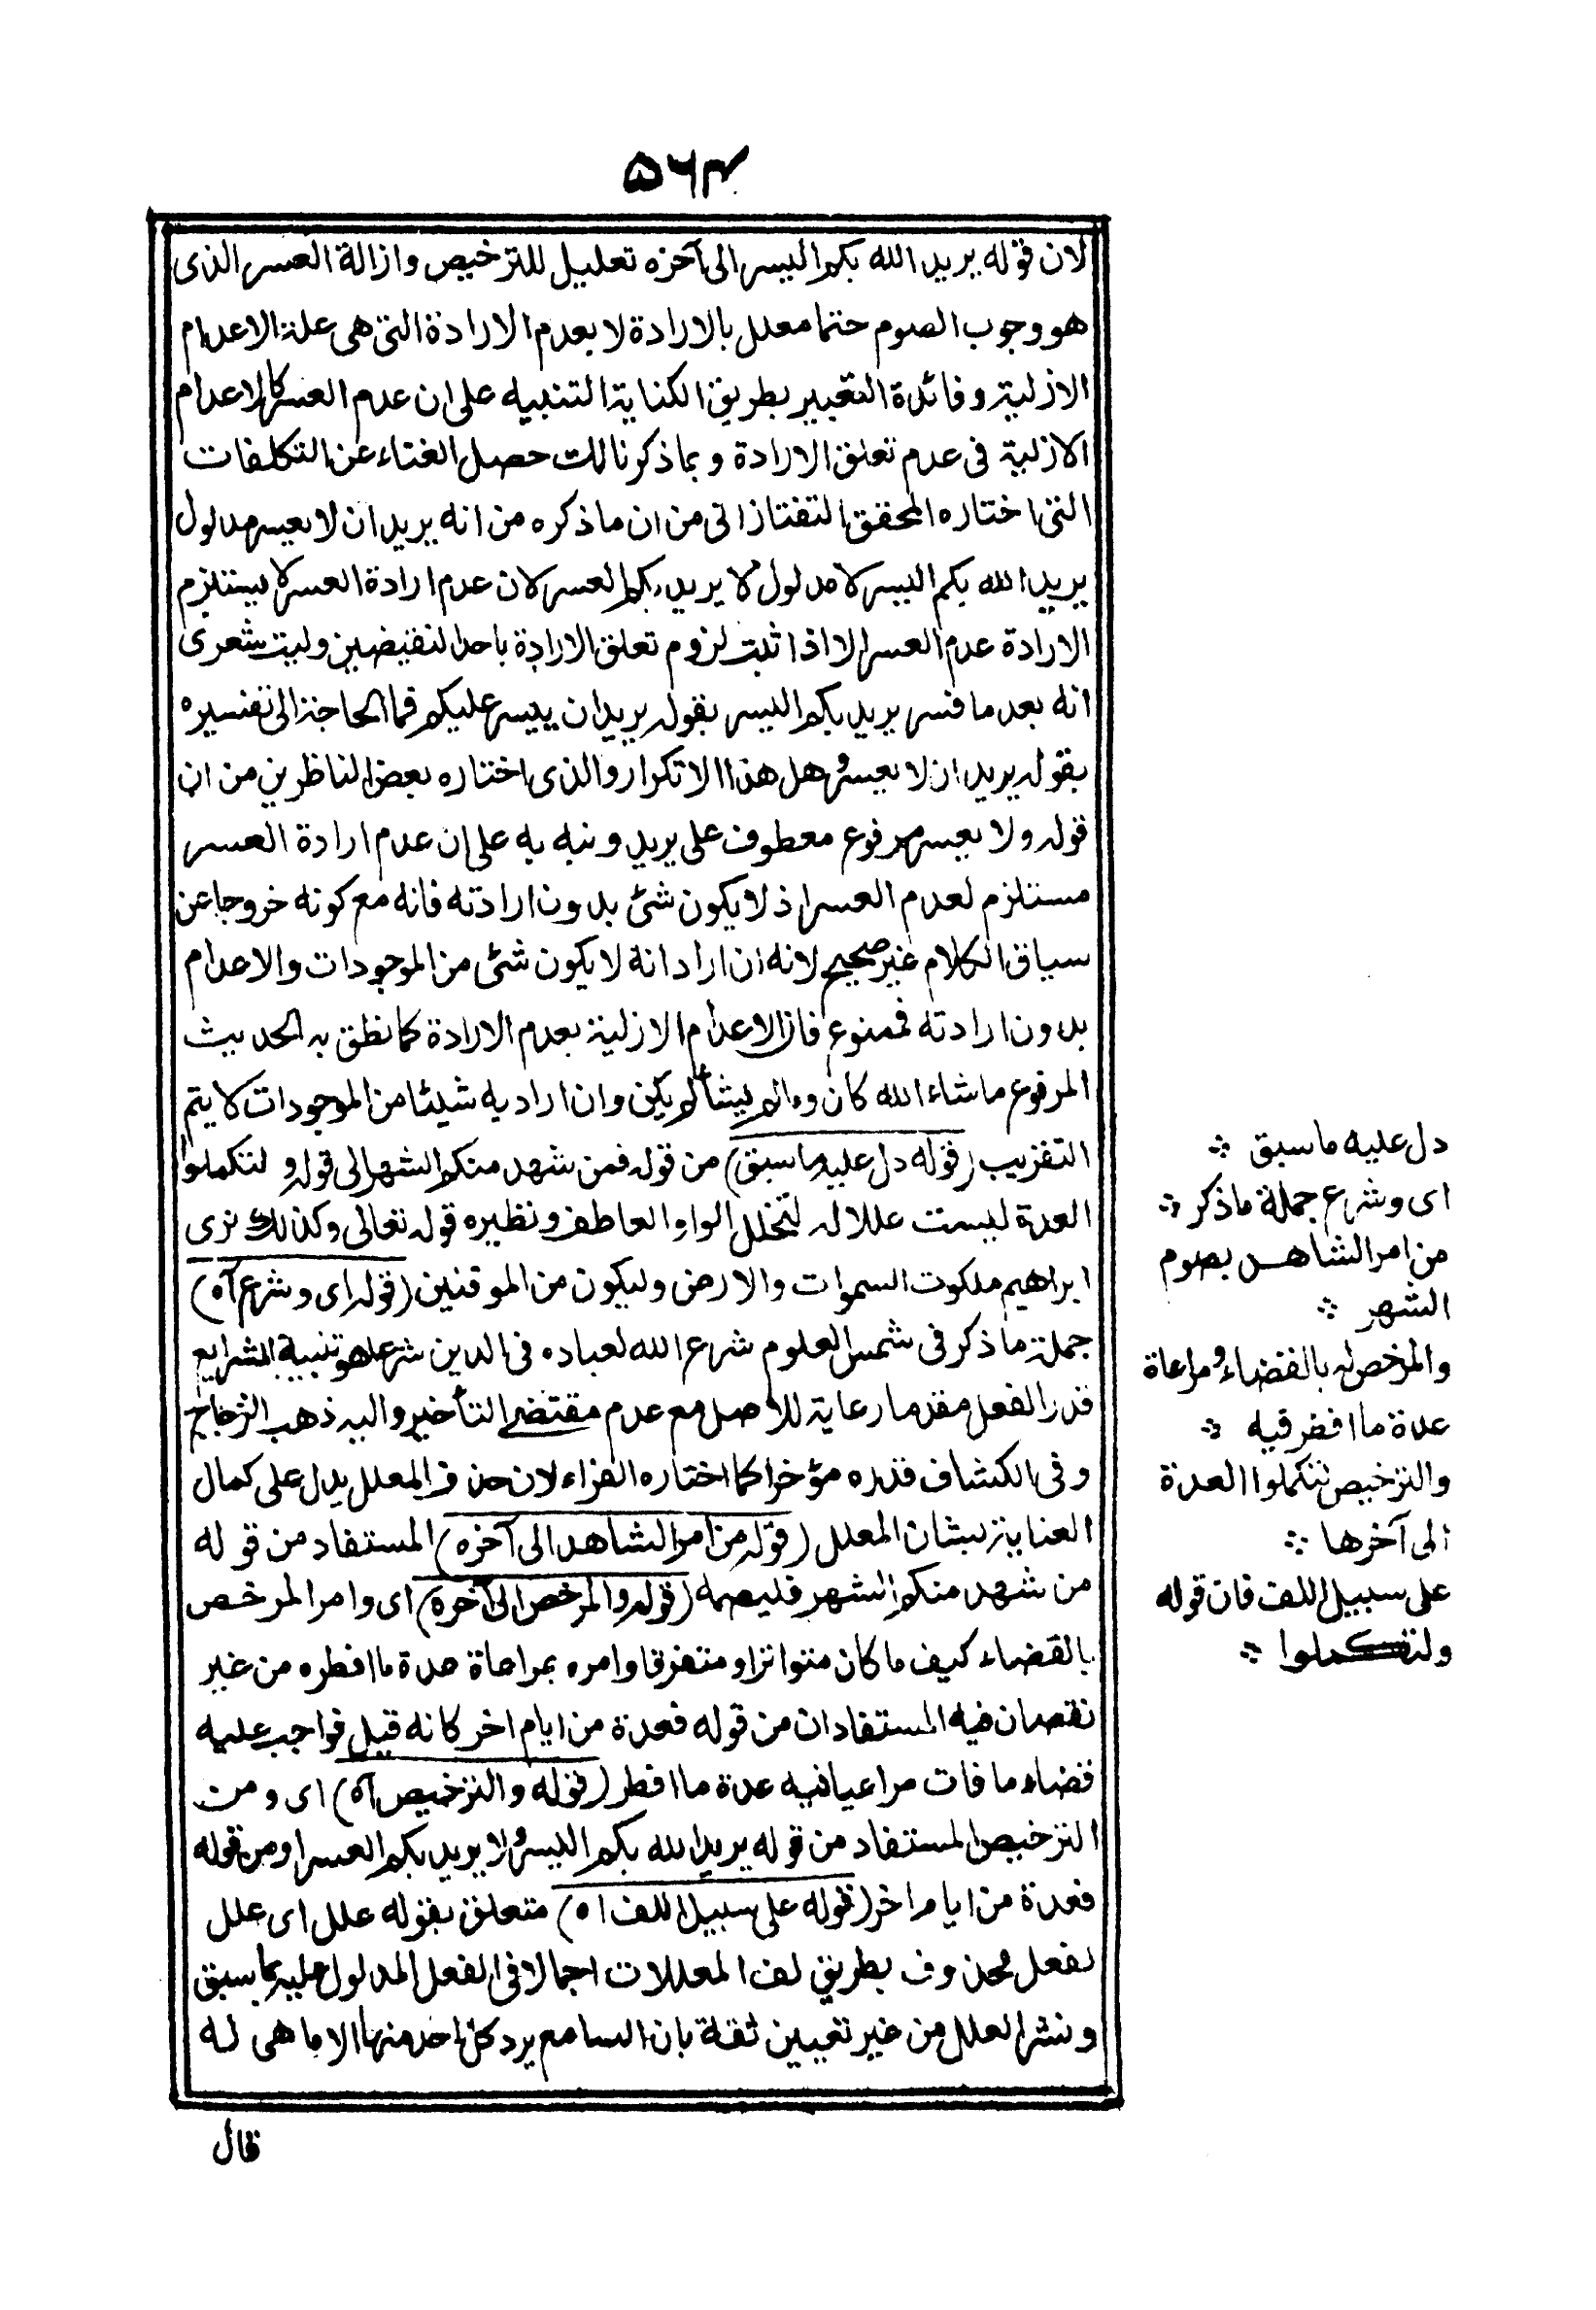 ۵۶۴
لان قوله يريد الله بكم اليسر الى آخره تعليل للترخيص وازالة العسر الذى
هو وجوب الصوم حتما معلل بالارادة لا بعدم الارادة التى هى علة الاعدام
الازلية وفائدة التعبير بطريق الكناية التنبيه على ان عدم العسر كالاعدام
الازلية فى عدم تعلق الارادة وبما ذكرنا لك حصل الغناء عن التكلفات
التى اختاره المحقق التفتازانى من ان ما ذكره من انه يريد ان لا يعسر مدلول
يريد الله بكم اليسر لا مدلول لا يريد بكم العسر لان عدم ارادة العسر لا يستلزم
الارادة عدم العسر الا اذا ثبت لزوم تعلق الارادة باحد النقيضين وليت شعرى
انه بعد ما فسر يريد بكم اليسر بقوله يريد ان ييسر عليكم فما الحاجة الى تفسيره
بقوله يريد ان لا يعسر وهل هذا الا تكرار والذى اختاره بعض الناظرين من ان
قوله ولا يعسر مرفوع معطوف على يريد ونبه به على ان عدم ارادة العسر
مستلزم لعدم العسر اذ لا يكون شئ بدون ارادته فانه مع كونه خروجا عن
سياق الكلام غير صحيح لانه ان اراد انه لا يكون شئ من الموجودات والاعدام
بدون ارادته فممنوع فان الاعدام الازلية بعدم الارادة كما نطق به الحديث
المرفوع ما شاء الله كان وما لم يشأ لم يكن وان اراد به شيئا من الموجودات لا يتم
التقريب (قوله دل عليه ما سبق) من قوله فمن شهد منكم الشهر الى قوله ولتكملوا
العدة ليست عللا له لتخلل الواو العاطف ونظيره قوله تعالى وكذلك نرى
ابراهيم ملكوت السموات والارض وليكون من الموقنين (قوله اى وشرع آه)
جملة ما ذكر فى شمس العلوم شرع الله لعباده فى الدين شرعا هو تنبيه الشرايع
قدر الفعل مقدما رعاية للاصل مع عدم مقتضى التأخير واليه ذهب الزجاج
وفى الكشاف قدره مؤخرا كما اختاره الفراء لان حذف المعلل يدل على كمال
العناية بشان المعلل (قوله من امر الشاهد الى آخره) المستفاد من قوله
من شهد منكم الشهر فليصمه (قوله والمرخص الى آخره) اى وامر المرخص
بالقضاء كيف ما كان متواترا ومتفرقا وامره بمراعاة عدة ما افطره من غير
نقصان فيه المستفادان من قوله فعدة من ايام اخر كانه قيل فواجب عليه
قضاء ما فات مراعيا فيه عدة ما افطر (قوله والترخيص آه) اى ومن
الترخيص المستفاد من قوله يريد الله بكم اليسر ولا يريد بكم العسر او من قوله
فعدة من ايام اخر (قوله على سبيل اللف اه) متعلق بقوله علل اى علل
لفعل محذوف بطريق لف المعللات اجمالا فى الفعل المدلول عليه بما سبق
ونشر العلل من غير تعيين ثقة بان السامع يرد كل احد منها الا ما هى له
قال
دل عليه ما سبق
اى وشرع جملة ما ذكر
من امر الشاهد بصوم
الشهر
والمرخص له بالقضاء ومراعاة
عدة ما افطر فيه
والترخيص لتكملوا العدة
الى آخرها
على سبيل اللف فان قوله
ولتكملوا